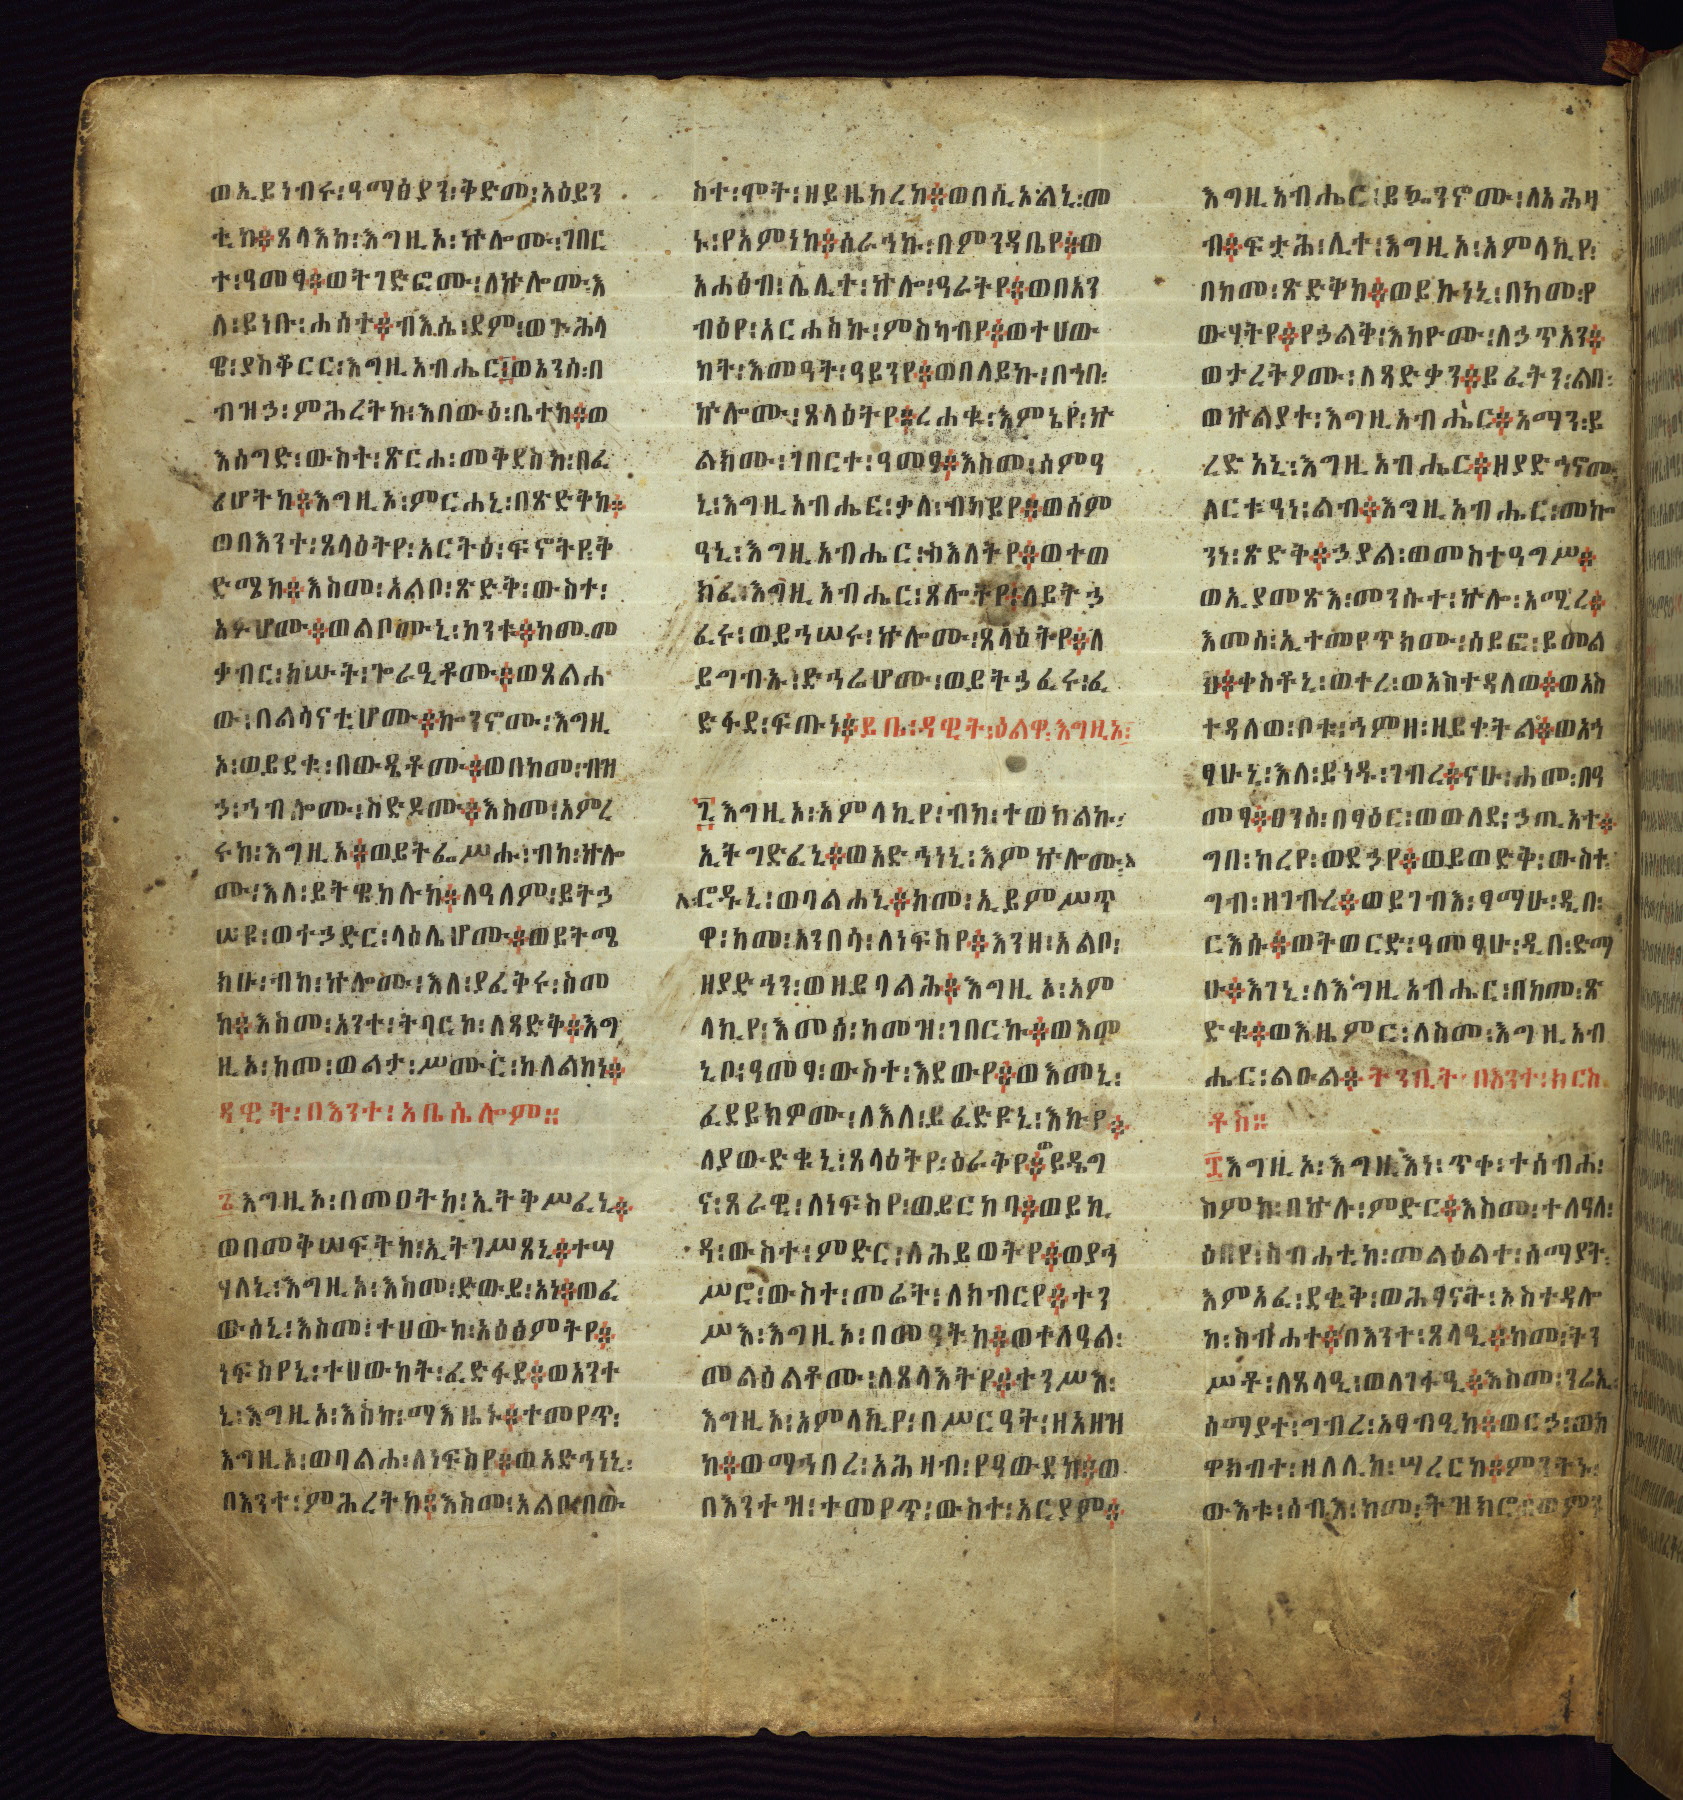 ወኢይነብሩ፡ዓማፅያን፡ቅድመ፡አዕይን
ቲከ፨ጸላእከ፡እግዚኦ፡ኵሎሙ፡ገበር
ተ፡ዓመፃ፨ወትገድፎሙ፡ለኵሎሙ፡እ
ለ፡ይነቡ፡ሐሰተ፨ብእሴ፡ደም፡ወጕሕላ
ዌ፡ያስቆርር፡እግዚአብሔር፨ወአንሰ፡በ
ብዝኃ፡ምሕረትከ፡እበውዕ፡ቤተከ፨ወ
እሰግድ፡ውስተ፡ጽርሐ፡መቅደስከ፡በፈ
ሪሆትከ፨እግዚኦ፡ምርሐኒ፡በጽድቅከ፨
ወበእንተ፡ጸላዕትየ፡አርትዕ፡ፍኖትየ፡ቅ
ድሜከ፨እስመ፡አልቦ፡ጽድቅ፡ውስተ፡
አፉሆሙ፨ወልቦሙኒ፡ከንቱ፨ከመ፡መ
ቃብር፡ክሡት፡ጐራዒቶሙ፨ወጸልሐ
ው፡በልሳናቲሆሙ፨ኰንኖሙ፡እግዚ
ኦ፡ወይደቁ፡በውዴቶሙ፨ወበከመ፡ብዝ
ኃ፡ኀብሎሙ፡ስድዶሙ፨እስመ፡አምረ
ሩከ፡እግዚኦ፨ወይትፌሥሑ፡ብከ፡ኵሎ
ሙ፡እለ፡ይትዌከሉከ፨ለዓለም፡ይትኃ
ሠዩ፡ወተኃድር፡ላዕሌሆሙ፨ወይትሜ
ክሁ፡ብከ፡ኵሎሙ፡እለ፡ያፈቅሩ፡ስመ
ከ፨እስመ፡አንተ፡ትባርኮ፡ለጻድቅ፨እግ
ዚኦ፡ከመ፡ወልታ፡ሥሙር፡ከለልከነ፨
ዳዊት፡በእንተ፡አቤሴሎም።
፮እግዚኦ፡በመዐትከ፡ኢትቅሥፈኒ፨
ወበመቅሠፍትከ፡ኢትገሥጸኒ፨ተሣ
ሃለኒ፡እግዚኦ፡እስመ፡ድውይ፡አነ፨ወፈ
ውሰኒ፡እስመ፡ተሀውከ፡አዕፅምትየ፨
ነፍስየኒ፡ተሀውከት፡ፈድፋደ፨ወአንተ
ኒ፡እግዚኦ፡እስከ፡ማእዜኑ፨ተመየጥ፡
እግዚኦ፡ወባልሐ፡ለነፍስየ፨ወአድኅነኒ፡
በእንተ፡ምሕረትከ፨እስመ፡አልቦ፡በው
ስተ፡ሞት፡ዘይዜከረከ፨ወበሲኦልኒ፡መ
ኑ፡የአምነከ፨ሰራኅኩ፡በምንዳቤየ፨ወ
አሐፅብ፡ሌሊተ፡ኵሎ፡ዓራትየ፨ወበአን
ብዕየ፡አርሐስኩ፡ምስካብየ፨ወተሀው
ከት፡እመዓት፡ዓይንየ፨ወበለይኩ፡በኀበ፡
ኵሎሙ፡ጸላዕትየ፨ረሐቁ፡እምኔየ፡ኵ
ልክሙ፡ገበርተ፡ዓመፃ፨እስመ፡ሰምዓ
ኒ፡እግዚአብሔር፡ቃለ፡ብካይየ፨ወሰም
ዓኒ፡እግዚአብሔር፡ስእለትየ፨ወተወ
ክፈ፡እግዚአብሔር፡ጸሎትየ፡ለይትኃ
ፈሩ፡ወይኀሠሩ፡ኵሎሙ፡ጸላዕትየ፨ለ
ይግብኡ፡ድኅሬሆሙ፡ወይትኃፈሩ፡ፈ
ድፋደ፡ፍጡነ፨ይቤ፡ዳዊት፡ዕልዋ፡እግዚኦ፡
፯እግዚኦ፡አምላኪየ፡ብከ፡ተወከልኩ፡
ኢትግድፈኒ፨ወአድኅነኒ፡እምኵሎሙ፡እ
ለ፡ሮዱኒ፡ወባልሐኒ፨ከመ፡ኢይምሥጥ
ዋ፡ከመ፡አንበሳ፡ለነፍስየ፨እንዘ፡አልቦ፡
ዘያድኅን፡ወዘይባልሕ፨እግዚኦ፡አም
ላኪየ፡እመሰ፡ከመዝ፡ገበርኩ፨ወእመ
ኒቦ፡ዓመፃ፡ውስተ፡እደውየ፨ወእመኒ፡
ፈደይክዎሙ፡ለእለ፡ይፈድዩኒ፡እኩየ፨
ለያውድቁኒ፡ጸላዕትየ፡ዕራቅየ፨ወይዴግ
ና፡ጸራዊ፡ለነፍስየ፡ወይርከባ፨ወይኪ
ዳ፡ውስተ፡ምድር፡ለሕይወትየ፨ወያኀ
ሥሮ፡ውስተ፡መሬት፡ለክብርየ፨ተን
ሥእ፡እግዚኦ፡በመዓትከ፨ወተለዓል፡
መልዕልቶሙ፡ለጸላእትየ፨ተንሥእ፡
እግዚኦ፡አምላኪየ፡በሥርዓት፡ዘአዘዝ
ከ፨ወማኅበረ፡አሕዛብ፡የዓውደከ፨ወ
በእንተዝ፡ተመየጥ፡ውስተ፡አርያም፨
እግዚአብሔር፡ይኴንኖሙ፡ለአሕዛ
ብ፨ፍታሕ፡ሊተ፡እግዚኦ፡አምላኪየ፡
በከመ፡ጽድቅከ፨ወይኩነኒ፡በከመ፡የ
ውሃትየ፨የኃልቅ፡እከዮሙ፡ለኃጥአን፨
ወታረትዖሙ፡ለጻድቃን፨ይፈትን፡ልበ፡
ወኵልያተ፡እግዚአብሔር፨አማን፡ይ
ረድአኒ፡እግዚአብሔር፨ዘያድኅኖሙ፡
ለርቱዓነ፡ልብ፨እግዚአብሔር፡መኰ
ንነ፡ጽድቅ፨ኃያል፡ወመስተዓግሥ፨
ወኢያመጽእ፡መንሱተ፡ኵሎ፡አሚረ፨
እመሰ፡ኢተመየጥክሙ፡ሰይፎ፡ይመል
ህ፨ቀስቶኒ፡ወተረ፡ወአስተዳለወ፨ወአስ
ተዳለወ፡ቦቱ፡ኀምዘ፡ዘይቀትል፨ወአኀ
ፃሁኒ፡እለ፡ይነዱ፡ገብረ፨ናሁ፡ሐመ፡በዓ
መፃ፨ፀንሰ፡በፃዕር፡ወወለደ፡ኃጢአተ፨
ግበ፡ከረየ፡ወደኃየ፨ወይወድቅ፡ውስተ፡
ግብ፡ዘገብረ፨ወይገብእ፡ፃማሁ፡ዲበ፡
ርእሱ፨ወትወርድ፡ዓመፃሁ፡ዲበ፡ድማ
ሁ፨እገኒ፡ለእግዚአብሔር፡በከመ፡ጽ
ድቁ፨ወእዜምር፡ለስመ፡እግዚአብ
ሔር፡ልዑል፨ትንቢት፡በእንተ፡ክርስ
ቶስ።
፰እግዚኦ፡እግዚእነ፡ጥቀ፡ተሰብሐ፡
ስምከ፡በኵሉ፡ምድር፨እስመ፡ተለዓለ፡
ዕበየ፡ስብሐቲከ፡መልዕልተ፡ሰማያት፡
እምአፈ፡ደቂቅ፡ወሕፃናት፡አስተዳሎ
ከ፡ስብሐተ፨በእንተ፡ጸላዒ፨ከመ፡ትን
ሥቶ፡ለጸላዒ፡ወለገፋዒ፨እስመ፡ንሬኢ፡
ሰማያተ፡ግብረ፡አፃብዒከ፨ወርኃ፡ወከ
ዋክብተ፡ዘለሊከ፡ሣረርከ፨ምንትኑ፡
ውእቱ፡ሰብእ፡ከመ፡ትዝክሮ፨ወምን